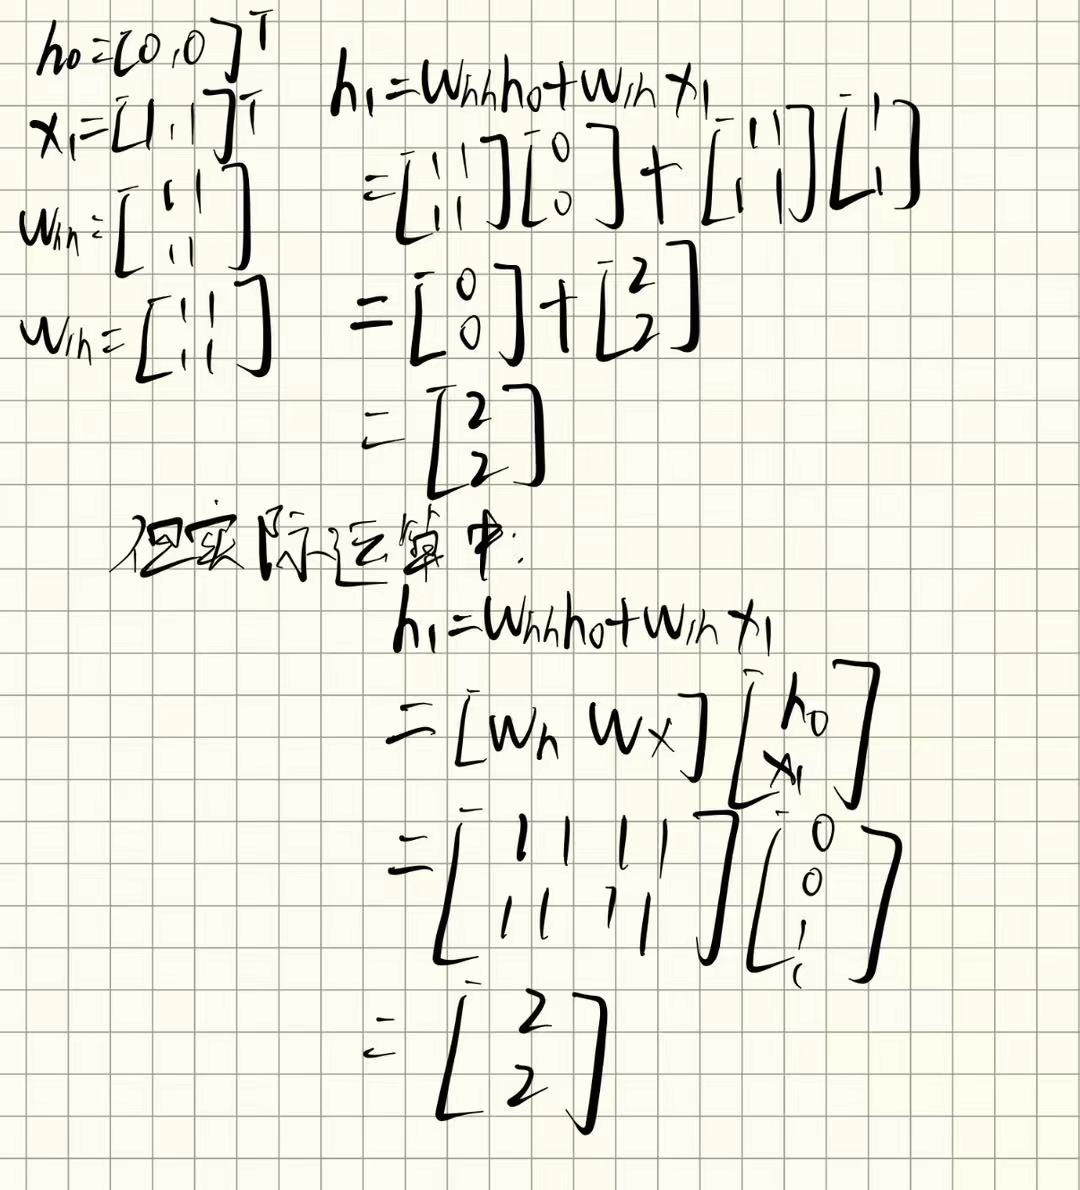 h₀=[0,0]ᵀ
x₁=[1,1]ᵀ
Whh=[1 1
1 1]
Wih=[1 1
1 1]
h₁=Whhh₀+Wihx₁
=[1 1; 1 1][0; 0]+[1 1; 1 1][1; 1]
=[0; 0]+[2; 2]
=[2; 2]
但实际运算中:
h₁=Whhh₀+Wihx₁
=[Wh Wx][h₀; x₁]
=[1 1 1 1; 1 1 1 1][0; 0; 1; 1]
=[2; 2]